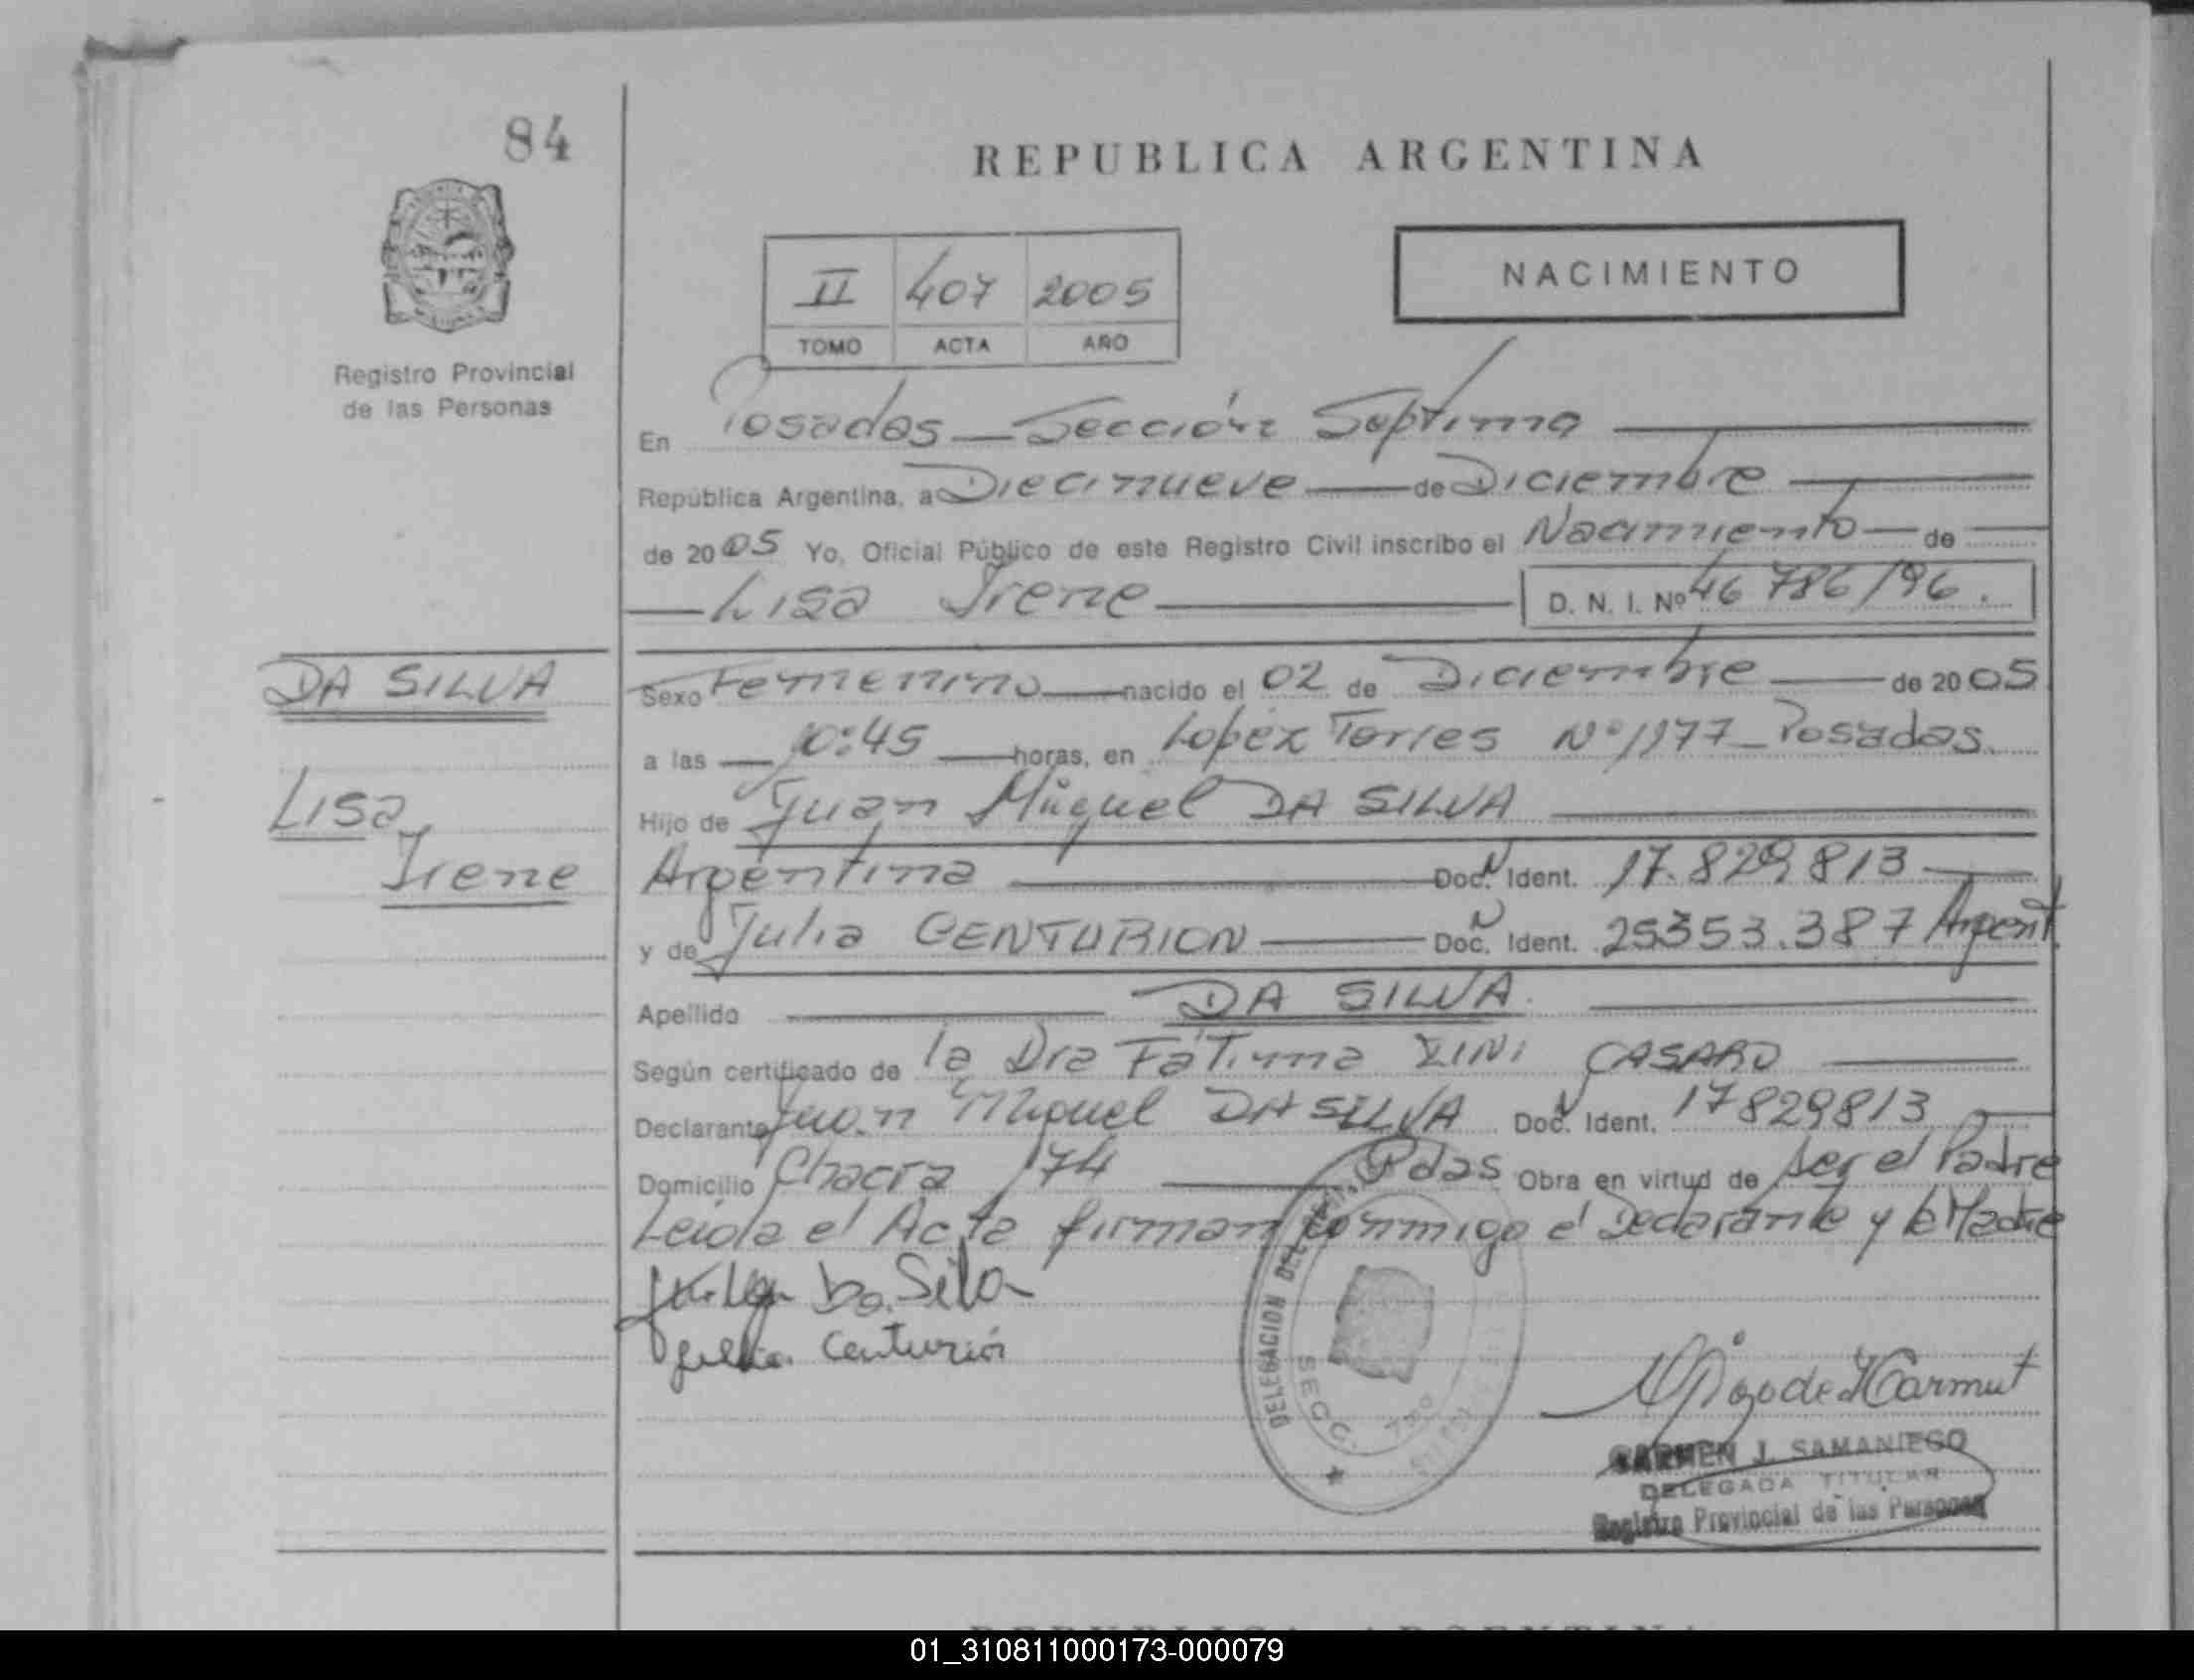 84
REPUBLICA ARGENTINA
II 407 2005
TOMO ACTA AÑO
NACIMIENTO
Registro Provincial
de las Personas
En Posadas — Sección Septima
República Argentina, a Diecinueve — de Diciembre
de 2005 Yo, Oficial Público de este Registro Civil inscribo el Nacimiento — de
— Lisa Irene — D. N. I. Nº 46 786196.
DA SILVA
Lisa
Irene
Sexo Femenino — nacido el 02 de Diciembre — de 2005
a las — 10:45 — horas, en Lopez Torres Nº 1977 - Posadas
Hijo de Juan Miguel DA SILVA
Argentina — Doc. Ident. 17.829813 —
y de Julia CENTURION — Doc. Ident. 25353.387 Argent.
Apellido — DA SILVA. —
Según certificado de la Dra Fátima ZINI CASARO —
Declarante Juan Miguel DA SILVA Doc. Ident. 17829813
Domicilio Chacra 174 — Pdas Obra en virtud de ser el Padre
Leida el Acta firman conmigo el Declarante y la Madre
Da Silva
Julia Centurión
DELEGACION DEL
SECC.
CARMEN J. SAMANIEGO
DELEGADA TITULAR
Registro Provincial de las Personas
01_310811000173-000079